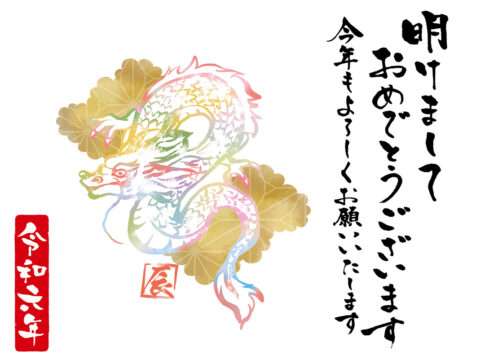 明けまして
おめでとうございます
今年もよろしくお願いいたします
辰
令和六年